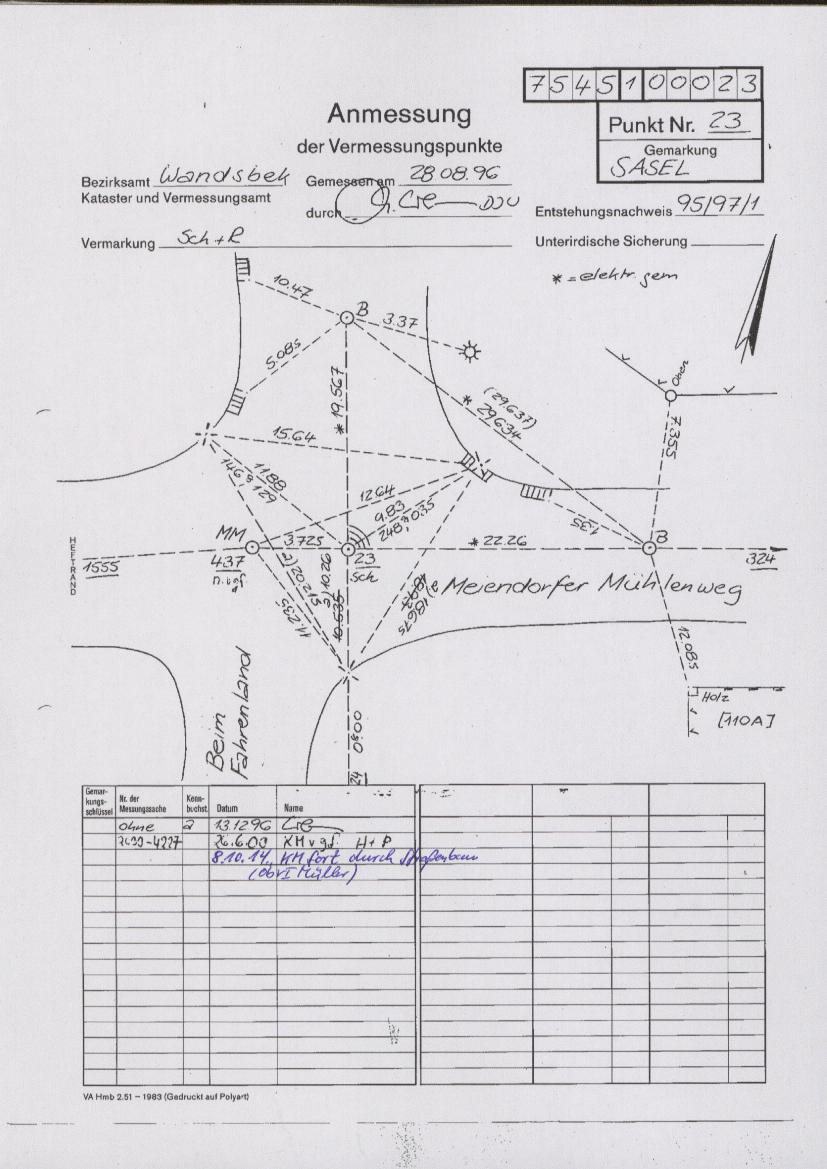 75451 00023
Anmessung
der Vermessungspunkte
Punkt Nr. 23
Gemarkung
SASEL
Bezirksamt Wandsbek
Kataster und Vermessungsamt
Gemessen am 28 08.96
durch
Entstehungsnachweis 95/97/1
Vermarkung Sch + R
Unterirdische Sicherung
* = elektr. gem
10.47
B
3.37
5.085
* 19.567
(29.637)
* 29.634
Oben
7.355
15.64
11.88
146g 129
12.64
9.83
248g 035
1.35
MM
3.725
23
Sch
* 22.26
B
HEFTRAND
1555
437
324
Meiendorfer Mühlenweg
a) 10.26
10.535
11.235
12.085
Holz
[110A]
Beim
Fahrenland
0g00
24
Gemar-
kungs-
schlüssel
Nr. der
Messungssache
Kenn-
buchst.
Datum
Name
ohne a 13.12 96
26.6.00 KM vgf. H+P
8.10.14. KM fort durch Straßenbau
(ObVI Müller)
VA Hmb 2.51 – 1983 (Gedruckt auf Polyart)